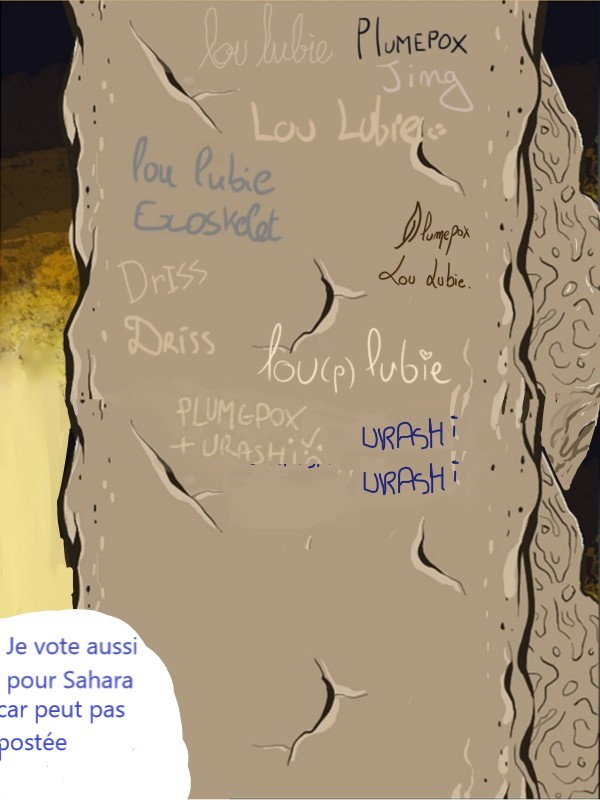 lou lubie
PLUMEPOX
Jing
Lou Lubie
lou lubie
Exoskelet
Plumepox
Lou Lubie.
DrISS
Driss
lou(p) lubie
PLUMEPOX
+ URASHi
URASHi
URASHi
Je vote aussi
pour Sahara
car peut pas
postée